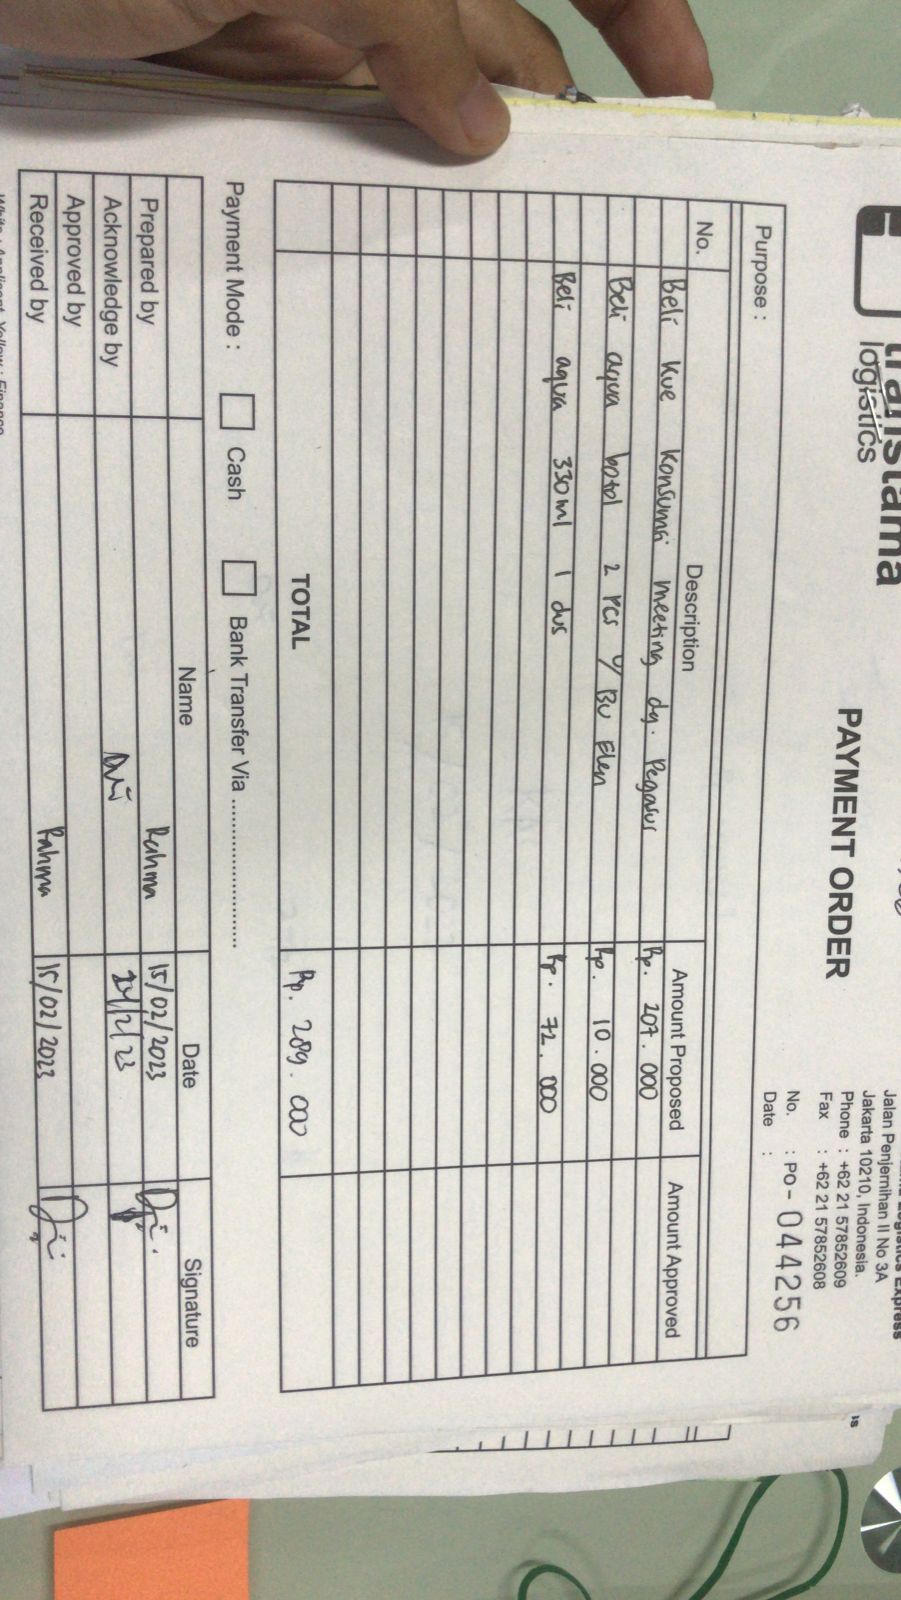 transtama
logistics
PAYMENT ORDER
Jalan Penjernihan II No 3A
Jakarta 10210, Indonesia.
Phone : +62 21 57852609
Fax : +62 21 57852608
No. : PO - 044256
Date :
Purpose :
No. Description Amount Proposed Amount Approved
Beli kue konsumsi meeting dg. Pegasus Rp. 207.000
Beli aqua botol 2 pcs u/ Bu Elen Rp. 10.000
Beli aqua 330ml 1 dus Rp. 72.000
TOTAL Rp. 289.000
Payment Mode : Cash Bank Transfer Via ........................
Name Date Signature
Prepared by Rahma 15/02/2023
Acknowledge by
Approved by
Received by Rahma 15/02/2023